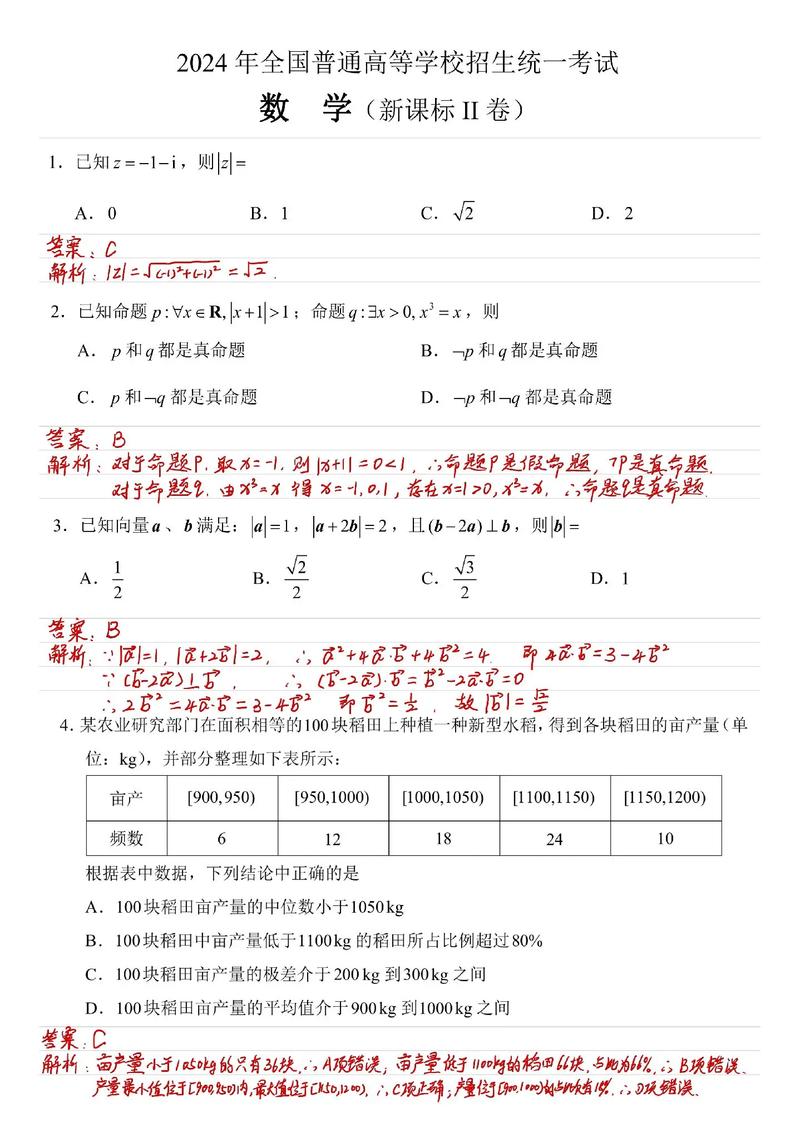 2024 年全国普通高等学校招生统一考试
数 学（新课标 II 卷）
1．已知 z = −1 − i，则|z| =
A．0 B．1 C．√2 D．2
答案：C
解析：|z|=√((-1)²+(-1)²) = √2 .
2．已知命题 p : ∀x ∈ R, |x+1| > 1；命题 q : ∃x > 0, x³ = x，则
A．p 和 q 都是真命题 B．¬p 和 q 都是真命题
C．p 和 ¬q 都是真命题 D．¬p 和 ¬q 都是真命题
答案：B
解析：对于命题P. 取 x=-1. 则 |x+1| = 0<1 , ∴命题P是假命题, ¬P是真命题.
对于命题q. 由 x³=x 得 x=-1,0,1 , 存在x=1>0, x³=x, ∴命题q是真命题.
3．已知向量 a、b 满足：|a| = 1，|a + 2b| = 2，且 (b − 2a) ⊥ b，则 |b| =
A．1/2 B．√2/2 C．√3/2 D．1
答案：B
解析：∵|a⃗|=1, |a⃗+2b⃗|=2, ∴ a⃗²+4a⃗·b⃗+4b⃗²=4. 即 4a⃗·b⃗=3-4b⃗²
∵ (b⃗-2a⃗)⊥b⃗ , ∴ (b⃗-2a⃗)·b⃗=b⃗²-2a⃗·b⃗=0
∴ 2b⃗²=4a⃗·b⃗=3-4b⃗² 即 b⃗²=1/2 , 故 |b⃗|=√2/2
4．某农业研究部门在面积相等的100块稻田上种植一种新型水稻，得到各块稻田的亩产量（单
位：kg），并部分整理如下表所示：
亩产 [900,950) [950,1000) [1000,1050) [1100,1150) [1150,1200)
频数 6 12 18 24 10
根据表中数据，下列结论中正确的是
A．100块稻田亩产量的中位数小于1050kg
B．100块稻田中亩产量低于1100kg 的稻田所占比例超过80%
C．100块稻田亩产量的极差介于200kg 到300kg 之间
D．100块稻田亩产量的平均值介于900kg 到1000kg 之间
答案：C
解析：亩产量小于1050kg的只有36块, ∴ A项错误; 亩产量低于1100kg的稻田66块, 占比为66%, ∴ B项错误.
产量最小值位于[900,950)内, 最大值位于[1150,1200), ∴ C项正确; 产量位于[900,1000)的占比只有18%, ∴ D项错误.